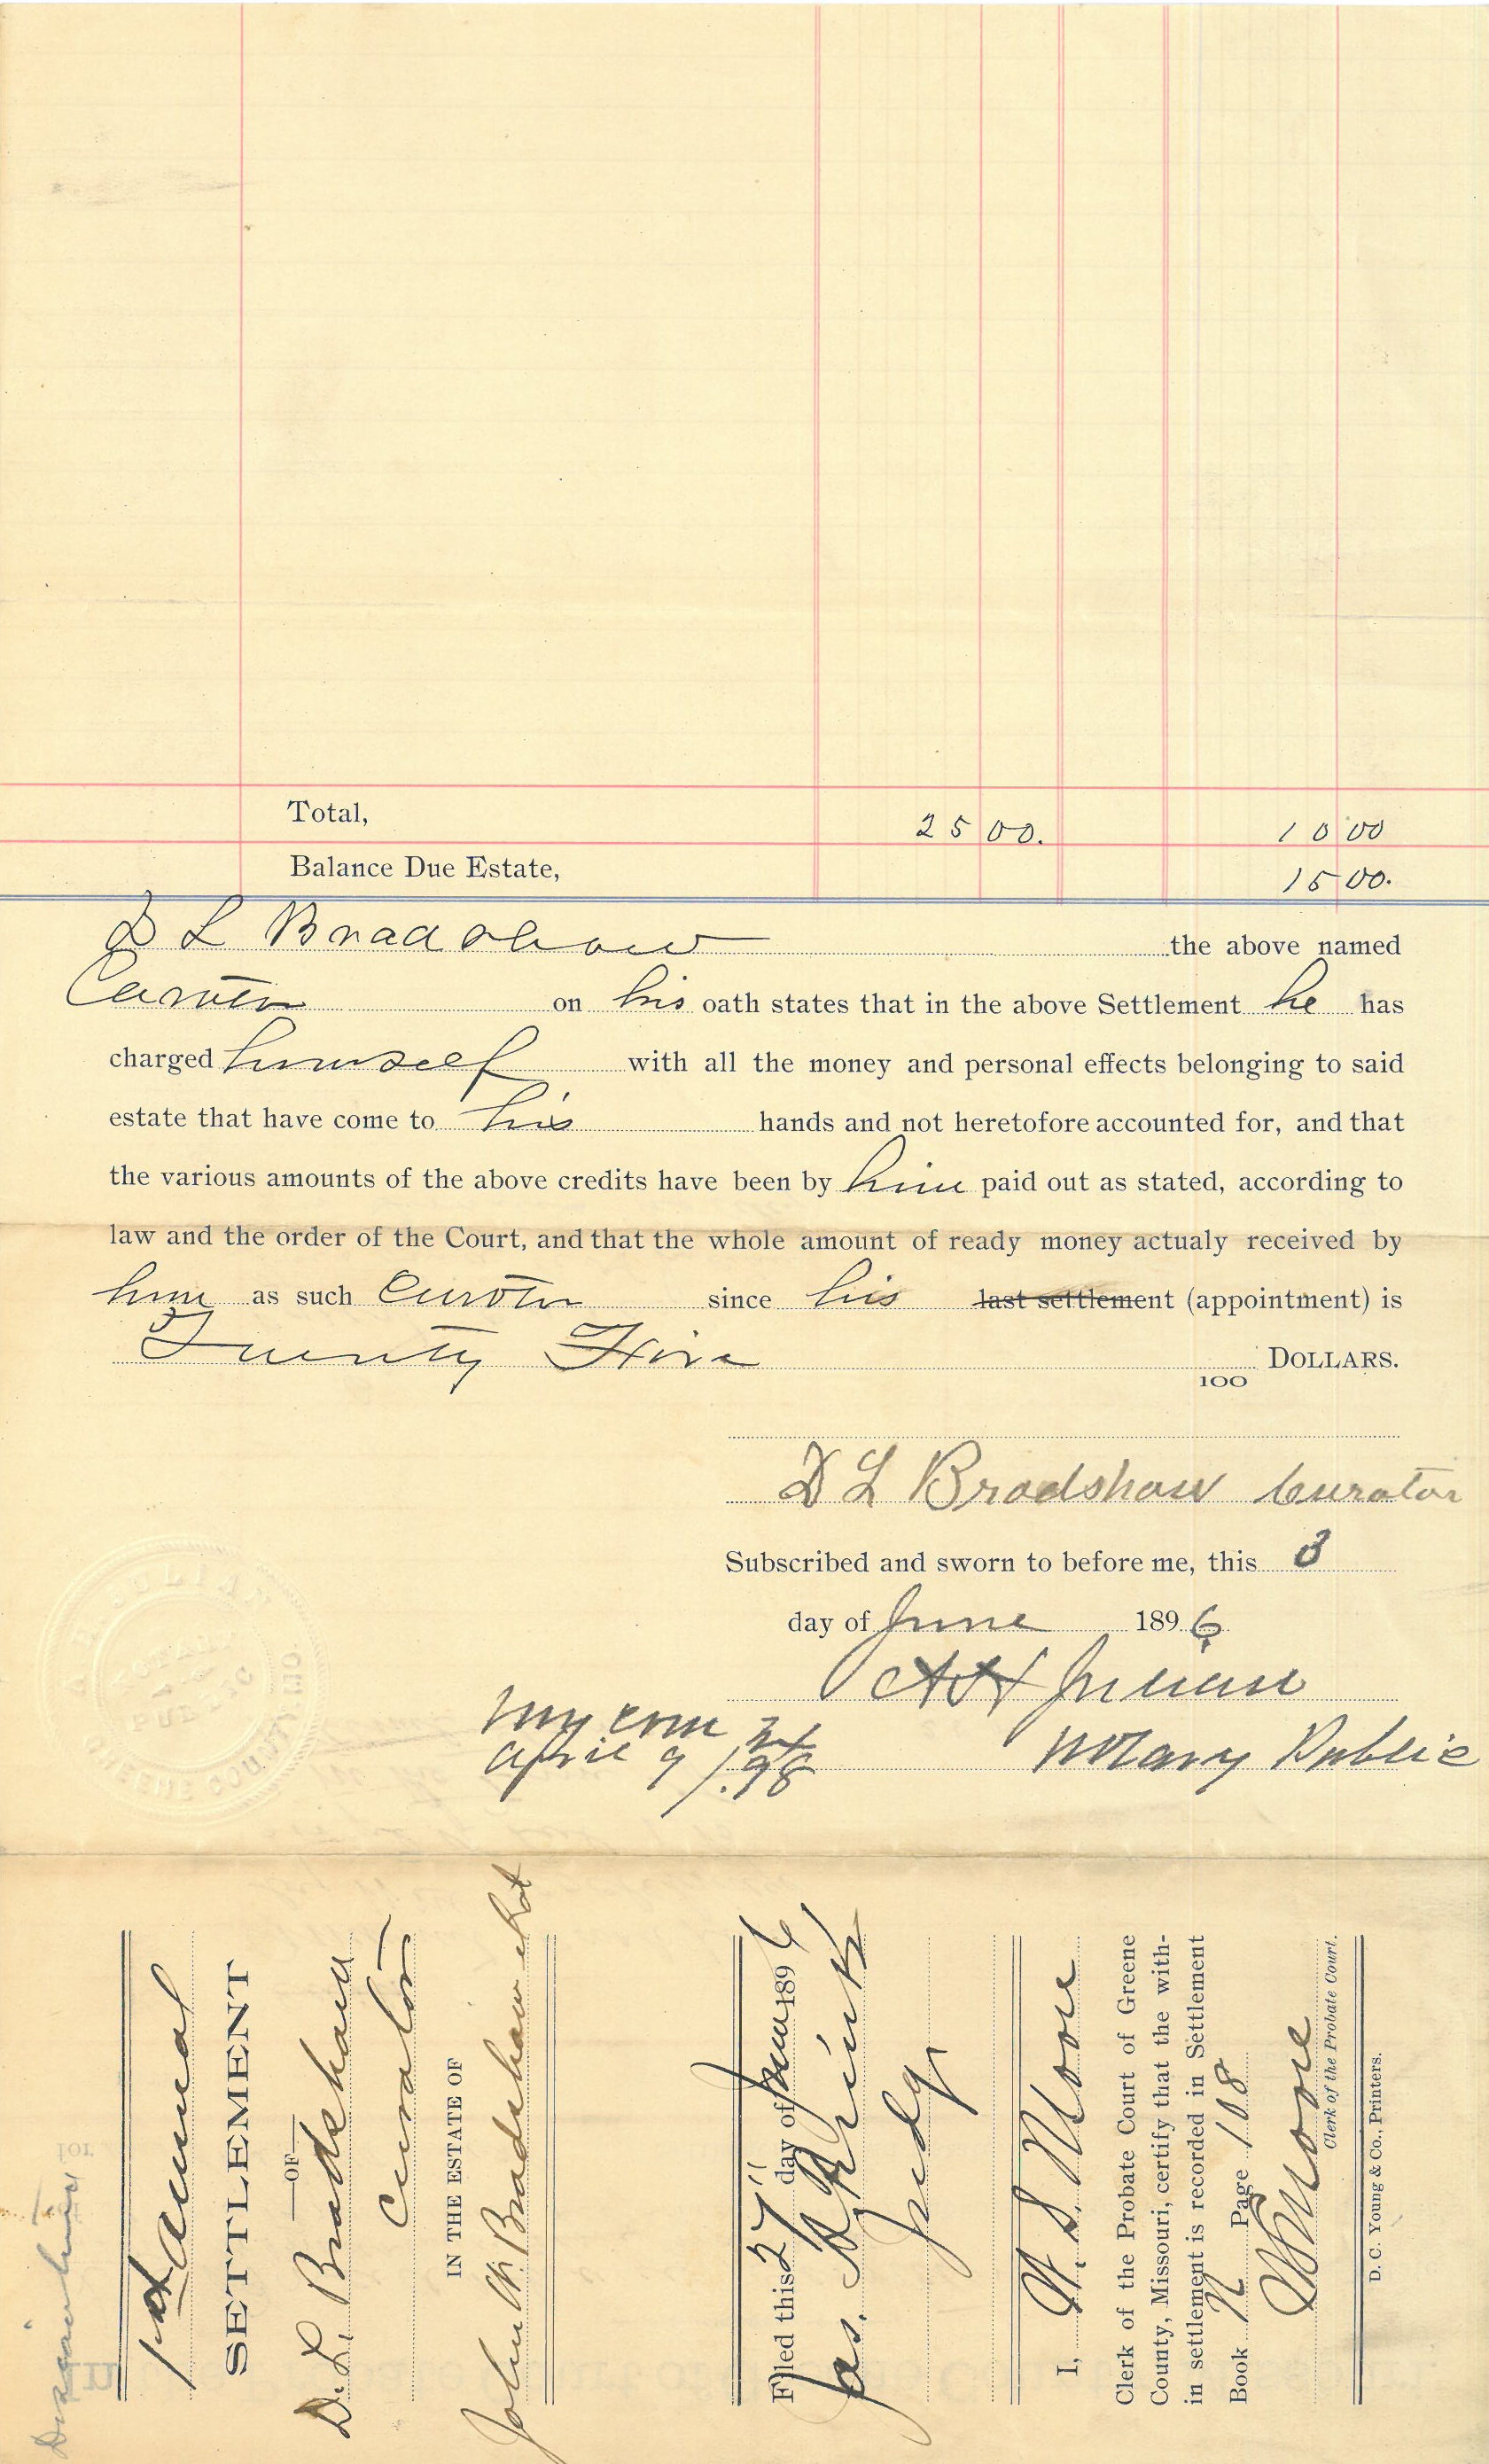 Total, 25 00. 10 00
Balance Due Estate, 15 00.
D L Bradshaw the above named
Curator on his oath states that in the above Settlement he has
charged himself with all the money and personal effects belonging to said
estate that have come to his hands and not heretofore accounted for, and that
the various amounts of the above credits have been by him paid out as stated, according to
law and the order of the Court, and that the whole amount of ready money actualy received by
him as such Curator since his last settlement (appointment) is
Twenty Five 100 DOLLARS.
D L Bradshaw Curator
Subscribed and sworn to before me, this 3
day of June 1896
A H Julian
My com Ex
April 9/.98 Notary Public
A H JULIAN
NOTARY PUBLIC
GREENE COUNTY MO
1st Annual
SETTLEMENT
—OF—
D. L. Bradshaw
Curator
IN THE ESTATE OF
John W. Bradshaw et al
Filed this 27" day of June 1896
Jas. Judge
I, W. S. Moore
Clerk of the Probate Court of Greene
County, Missouri, certify that the with-
in settlement is recorded in Settlement
Book N Page 108
W S Moore
Clerk of the Probate Court.
D. C. Young & Co., Printers.